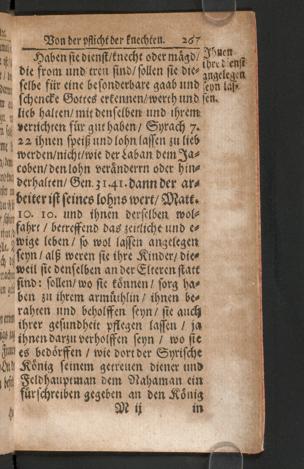 Von der pflicht der knechten. 267
Haben sie dienst/knecht oder mägd/
die from und treu sind/ sollen sie die-
selbe für eine besonderbare gaab und
schencke Gottes erkennen/werth und
lieb halten/ mit denselben und ihrem
verrichten für gut haben/ Syrach 7.
22 ihnen speiß und lohn lassen zu lieb
werden/nicht/wie der Laban dem Ja-
coben/den lohn verändern oder hin-
derhalten/ Gen. 31. 41. dann der ar-
beiter ist seines lohns wert/ Matt.
10. 10. und ihnen derselben wol-
fahrt / betreffend das zeitliche und e-
wige leben/ so wol lassen angelegen
seyn/ alß weren sie ihre Kinder/ die-
weil sie denselben an der Elteren statt
sind: sollen/ wo sie können/ sorg ha-
ben zu ihrem armühtlin/ ihnen be-
rahten und beholffen seyn/ sie auch
ihrer gesundheit pflegen lassen / ja
ihnen darzu verholffen seyn / wo sie
es bedörffen/ wie dort der Syrische
König seinem getreuen diener und
Feldhauptman dem Nahaman ein
fürschreiben gegeben an den König
M ij in
Ihnen
ihre dienst
angelegen
seyn las-
sen.